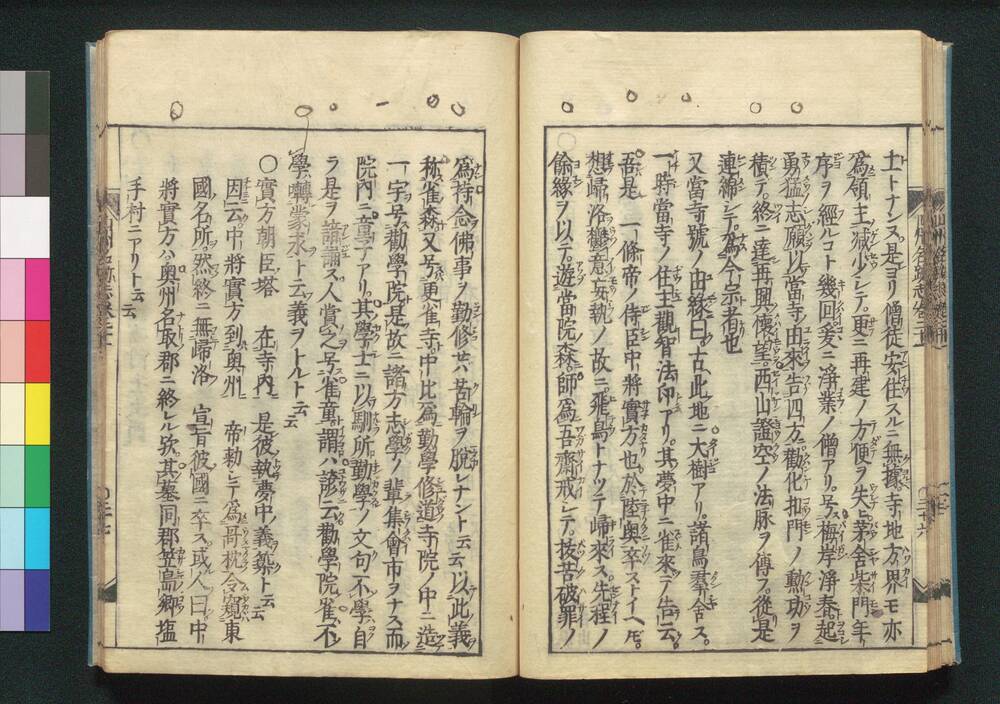 土トナンヌ是ヨリ僧徒安住スルニ無據寺地方界モ亦
為領主減少シテ更ニ再建ノ方便ヲ失ヒ茅舎柴門年
序ヲ經ルコト幾回爰ニ淨業ノ僧アリ号梅岸淨春起
勇猛志願以當寺由來告四方勸化扣門ノ勲功ヲ
積テ終ニ達再興懐望西山證空ノ法脉ヲ傳フ從是
連綿シテ為今宗者也
又當寺號ノ由縁曰古此地ニ大樹アリ諸鳥羣舎ス
一時當寺ノ住主觀智法印アリ其夢中ニ雀來テ告云
吾是一條帝ノ侍臣中將實方也於陸奥卒ストイヘ𪜈
想歸洛欝意妄執ノ故ニ飛鳥トナツテ歸來ス先程ノ
餘縁ヲ以テ遊當院森師為吾齋戒シテ抜苦破罪ノ
為持念佛事ヲ勤修セハ苦輪ヲ脱レナント云云以此義
称雀森又号更雀寺中比為勤學修道寺院ノ中ニ造
一宇号勸學院是故ニ諸方志學ノ輩集會市ヲナス而
院内ニ童子アリ其學士ニ以馴所勤學ノ文句不學自
ラ是ヲ諳誦ス人賞之号雀童謂ハ諺云勸學院雀不
學囀蒙求ト云義ヲトルト云云
〇實方朝臣塔　在寺内　是彼執夢中義築ト云云
因云中將實方到奥州　帝勅シテ為哥枕令窺東
國名所然終ニ無歸洛　宣旨彼國ニ卒ス或人曰中
將實方ハ奥州名取郡ニ終レル欤其墓同郡笠島郷塩
手村ニアリト云云